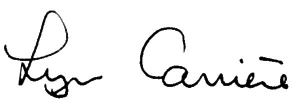 Lyn Carrière